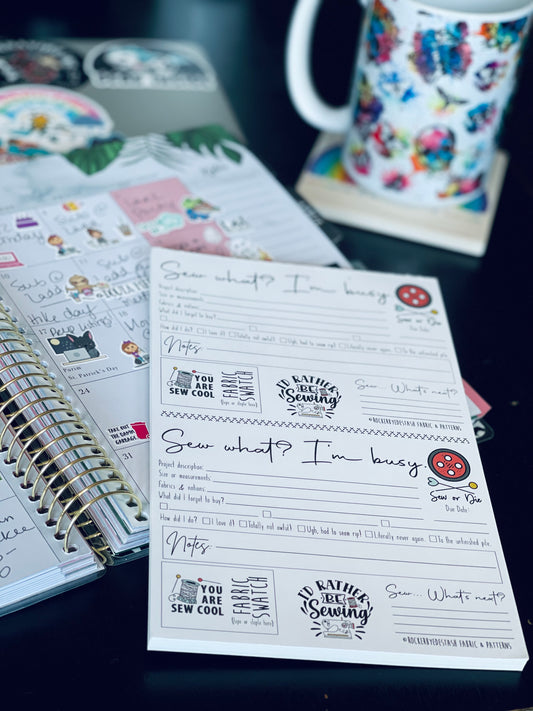 Sub @
Sub @
add
hike day
17 Prep listings
St. Patrick's Day
24
TAKE OUT
THE DAMN
GARBAGE
31
Sew what? I'm busy.
Project description:
Size or measurements:
Fabrics & notions:
What did I forget to buy?
Sew or Die
Due Date:
How did I do? I love it! Totally not awful! Ugh, had to seam rip! Literally never again. To the unfinished pile.
Notes:
YOU ARE
SEW COOL
FABRIC
SWATCH
(tape or staple here)
I'D RATHER
BE
Sewing
Sew... What's next?
©ROCKERBYEDESTASH FABRIC & PATTERNS
Sew what? I'm busy.
Project description:
Size or measurements:
Fabrics & notions:
What did I forget to buy?
Sew or Die
Due Date:
How did I do? I love it! Totally not awful! Ugh, had to seam rip! Literally never again. To the unfinished pile.
Notes:
YOU ARE
SEW COOL
FABRIC
SWATCH
(tape or staple here)
I'D RATHER
BE
Sewing
Sew... What's next?
©ROCKERBYEDESTASH FABRIC & PATTERNS